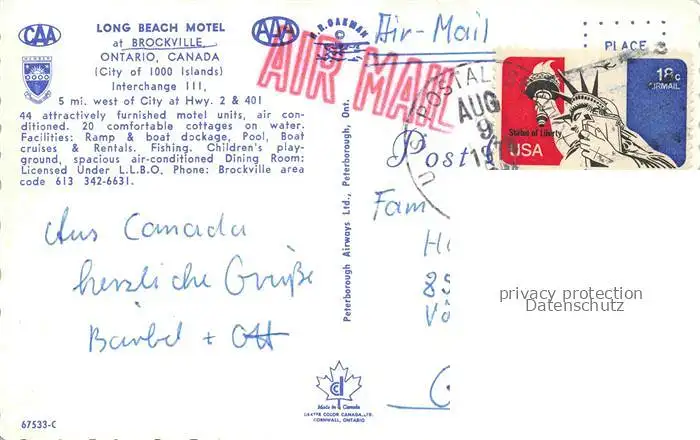 CAA
LONG BEACH MOTEL
at BROCKVILLE
ONTARIO, CANADA
(City of 1000 Islands)
Interchange 111,
5 mi. west of City at Hwy. 2 & 401
44 attractively furnished motel units, air con-
ditioned. 20 comfortable cottages on water.
Facilities: Ramp & boat dockage, Pool, Boat
cruises & Rentals. Fishing. Children's play-
ground, spacious air-conditioned Dining Room:
Licensed Under L.L.B.O. Phone: Brockville area
code 613 342-6631.
AAA
H.R. OAKMAN
Air-Mail
AIR MAIL
PLACE
U.S. POSTAL
AUG
9
18c
AIRMAIL
Statue of Liberty
USA
Post
Aus Canada
herzliche Grüße
Bärbel + Ott
Peterborough Airways Ltd., Peterborough, Ont.
Fam
H
85
Vö
privacy protection
Datenschutz
Made in Canada
CORNWALL, ONTARIO
67533-C